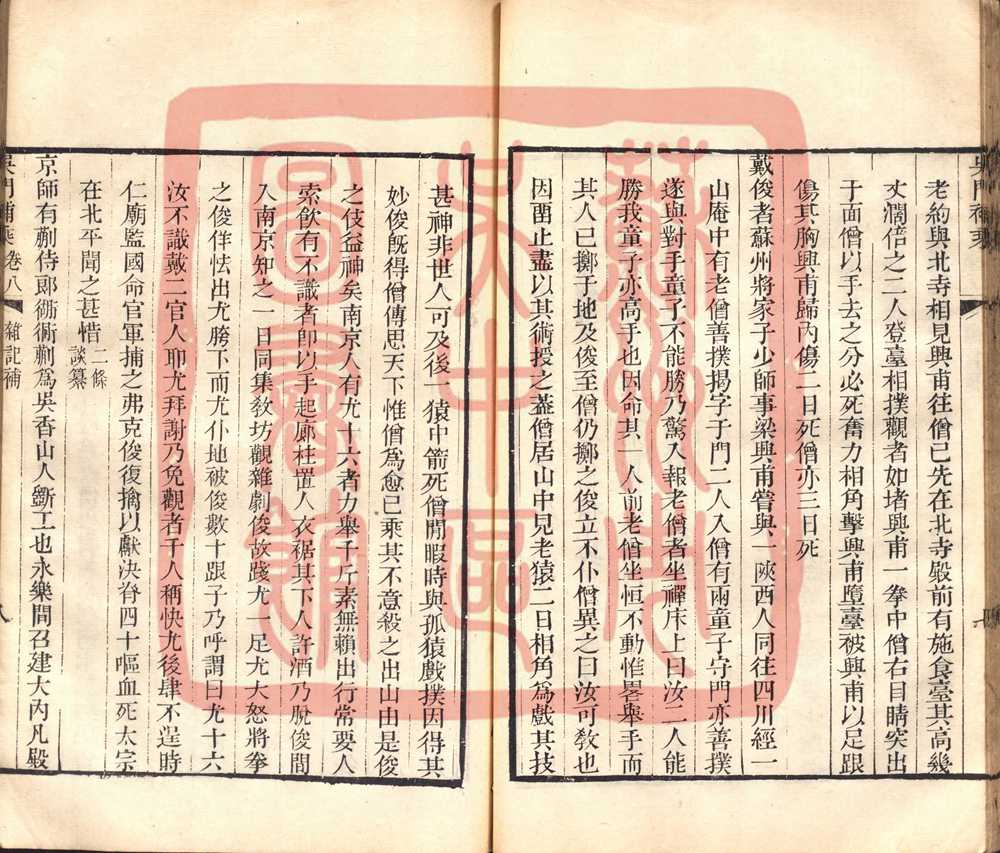 老約與北寺相見興甫往僧已先在北寺殿前有施食臺其高幾
丈濶倍之二人登臺相撲觀者如堵興甫一拳中僧右目睛突出
于面僧以手去之分必死奮力相角擊興甫墮臺被興甫以足跟
傷其胸興甫歸內傷二日死僧亦三日死
戴俊者蘇州將家子少師事梁興甫嘗與一陝西人同往四川經一
山庵中有老僧善撲揭字于門二人入僧有兩童子守門亦善撲
遂與對手童子不能勝乃驚入報老僧者坐禪床上曰汝二人能
勝我童子亦高手也因命其一人前老僧坐恒不動惟畧舉手而
其人已擲于地及俊至僧仍擲之俊立不仆僧異之曰汝可敎也
因畱止盡以其術授之葢僧居山中見老猿二日相角為戲其技
甚神非世人可及後一猿中箭死僧閒暇時與孤猿戲撲因得其
妙俊旣得僧傳思天下惟僧為愈已乘其不意殺之出山由是俊
之伎益神矣南京人有尤十六者力舉千斤素無賴出行常要人
索飲有不識者卽以手起廊柱置人衣裾其下人許酒乃脫俊間
入南京知之一日同集敎坊觀雜劇俊故踐尤一足尤大怒將拳
之俊佯怯出尤胯下而尤仆地被俊數十跟子乃呼謂曰尤十六
汝不識戴二官人耶尤拜謝乃免觀者千人稱快尤後肆不逞時
仁廟監國命官軍捕之弗克俊復擒以獻決脊四十嘔血死太宗
在北平聞之甚惜 二條談纂
京師有蒯侍郎衚衕蒯為吳香山人斵工也永樂間召建大內凡殿
吳門補乘 卷八 雜記補 八
蘇州市吳中區圖書館